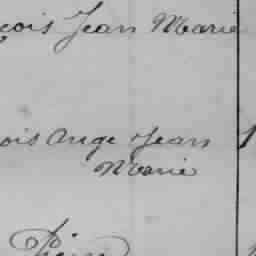 çois Jean Marie
ois Ange Jean
Marie